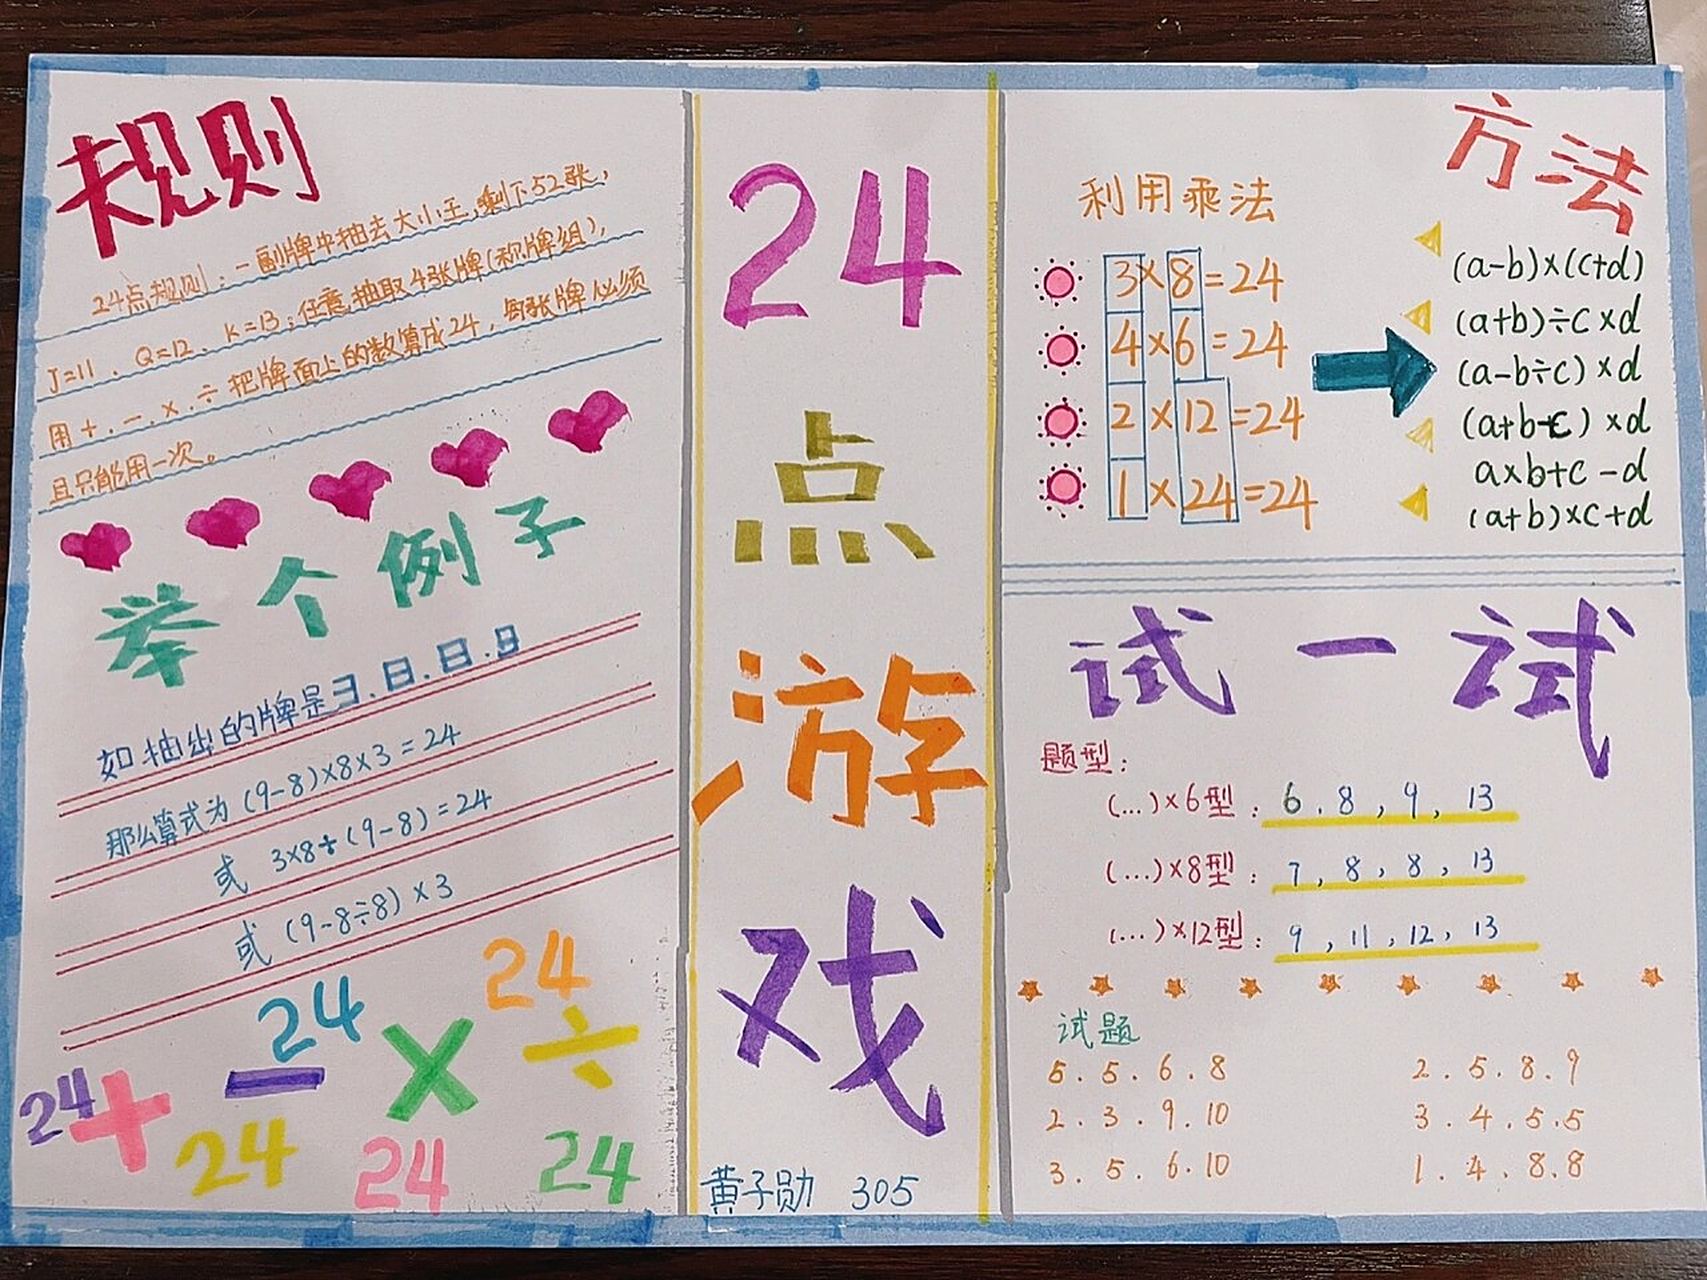 规则
24点规则：一副牌中抽去大小王，剩下52张，
J=11、Q=12、K=13；任意抽取4张牌(称牌组)，
用+.-.×.÷把牌面上的数算成24，每张牌必须
且只能用一次。
举个例子
如抽出的牌是3.8.8.9
那么算式为(9-8)×8×3=24
或 3×8÷(9-8)=24
或 (9-8÷8)×3
24
24
24 + - × ÷
24
24
24
24
点
游
戏
黄子勋 305
方法
利用乘法
3×8=24
4×6=24
2×12=24
1×24=24
(a-b)×(c+d)
(a+b)÷c×d
(a-b÷c)×d
(a+b-c)×d
a×b+c-d
(a+b)×c+d
试一试
题型：
(...)×6型：6.8,9,13
(...)×8型：7,8,8,13
(...)×12型：9,11,12,13
试题
5.5.6.8 2.5.8.9
2.3.9.10 3.4.5.5
3.5.6.10 1.4.8.8